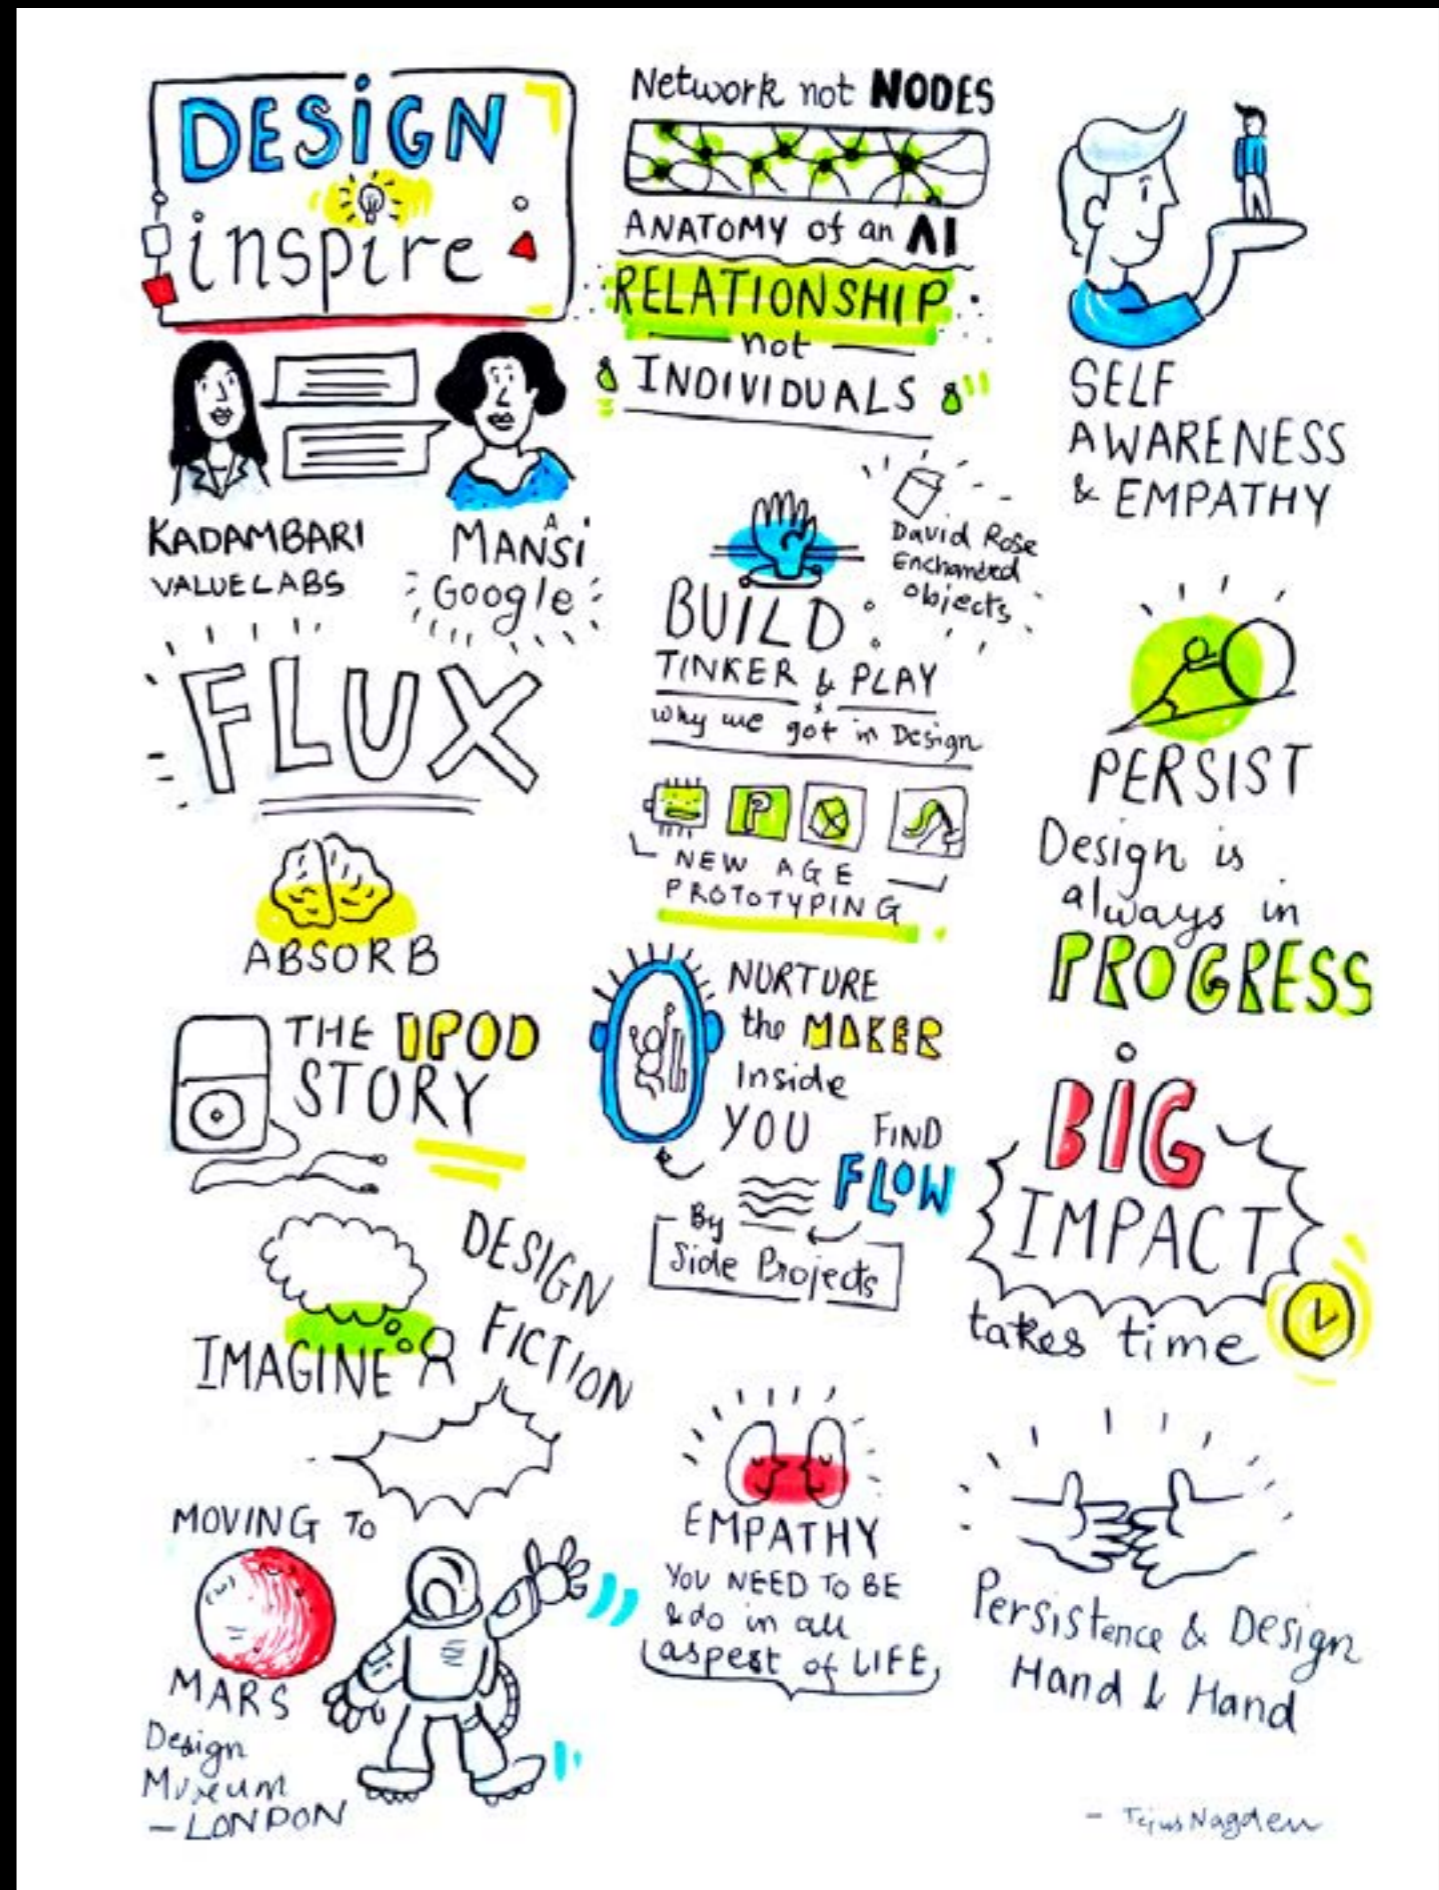 DESIGN
inspire
KADAMBARI
VALUELABS
MANSi A
Google
FLUX
ABSORB
THE IPOD
STORY
IMAGINE
DESIGN
FICTION
MOVING To
MARS
Design
Museum
- LONDON
Network not NODES
ANATOMY of an AI
RELATIONSHIP
not
INDIVIDUALS
David Rose
Enchanted
objects
BUILD
TINKER & PLAY
why we got in Design
P
NEW AGE
PROTOTYPING
NURTURE
the MAKER
Inside
YOU
FIND
FLOW
By
Side Projects
EMPATHY
YOU NEED TO BE
& do in all
aspest of LIFE,
SELF
AWARENESS
& EMPATHY
PERSIST
Design is
always in
PROGRESS
BiG
IMPACT
takes time
Persistence & Design
Hand & Hand